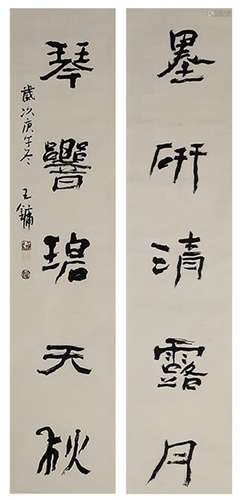 墨研清露月
琴響碧天秋
歲次庚午冬 王鏞